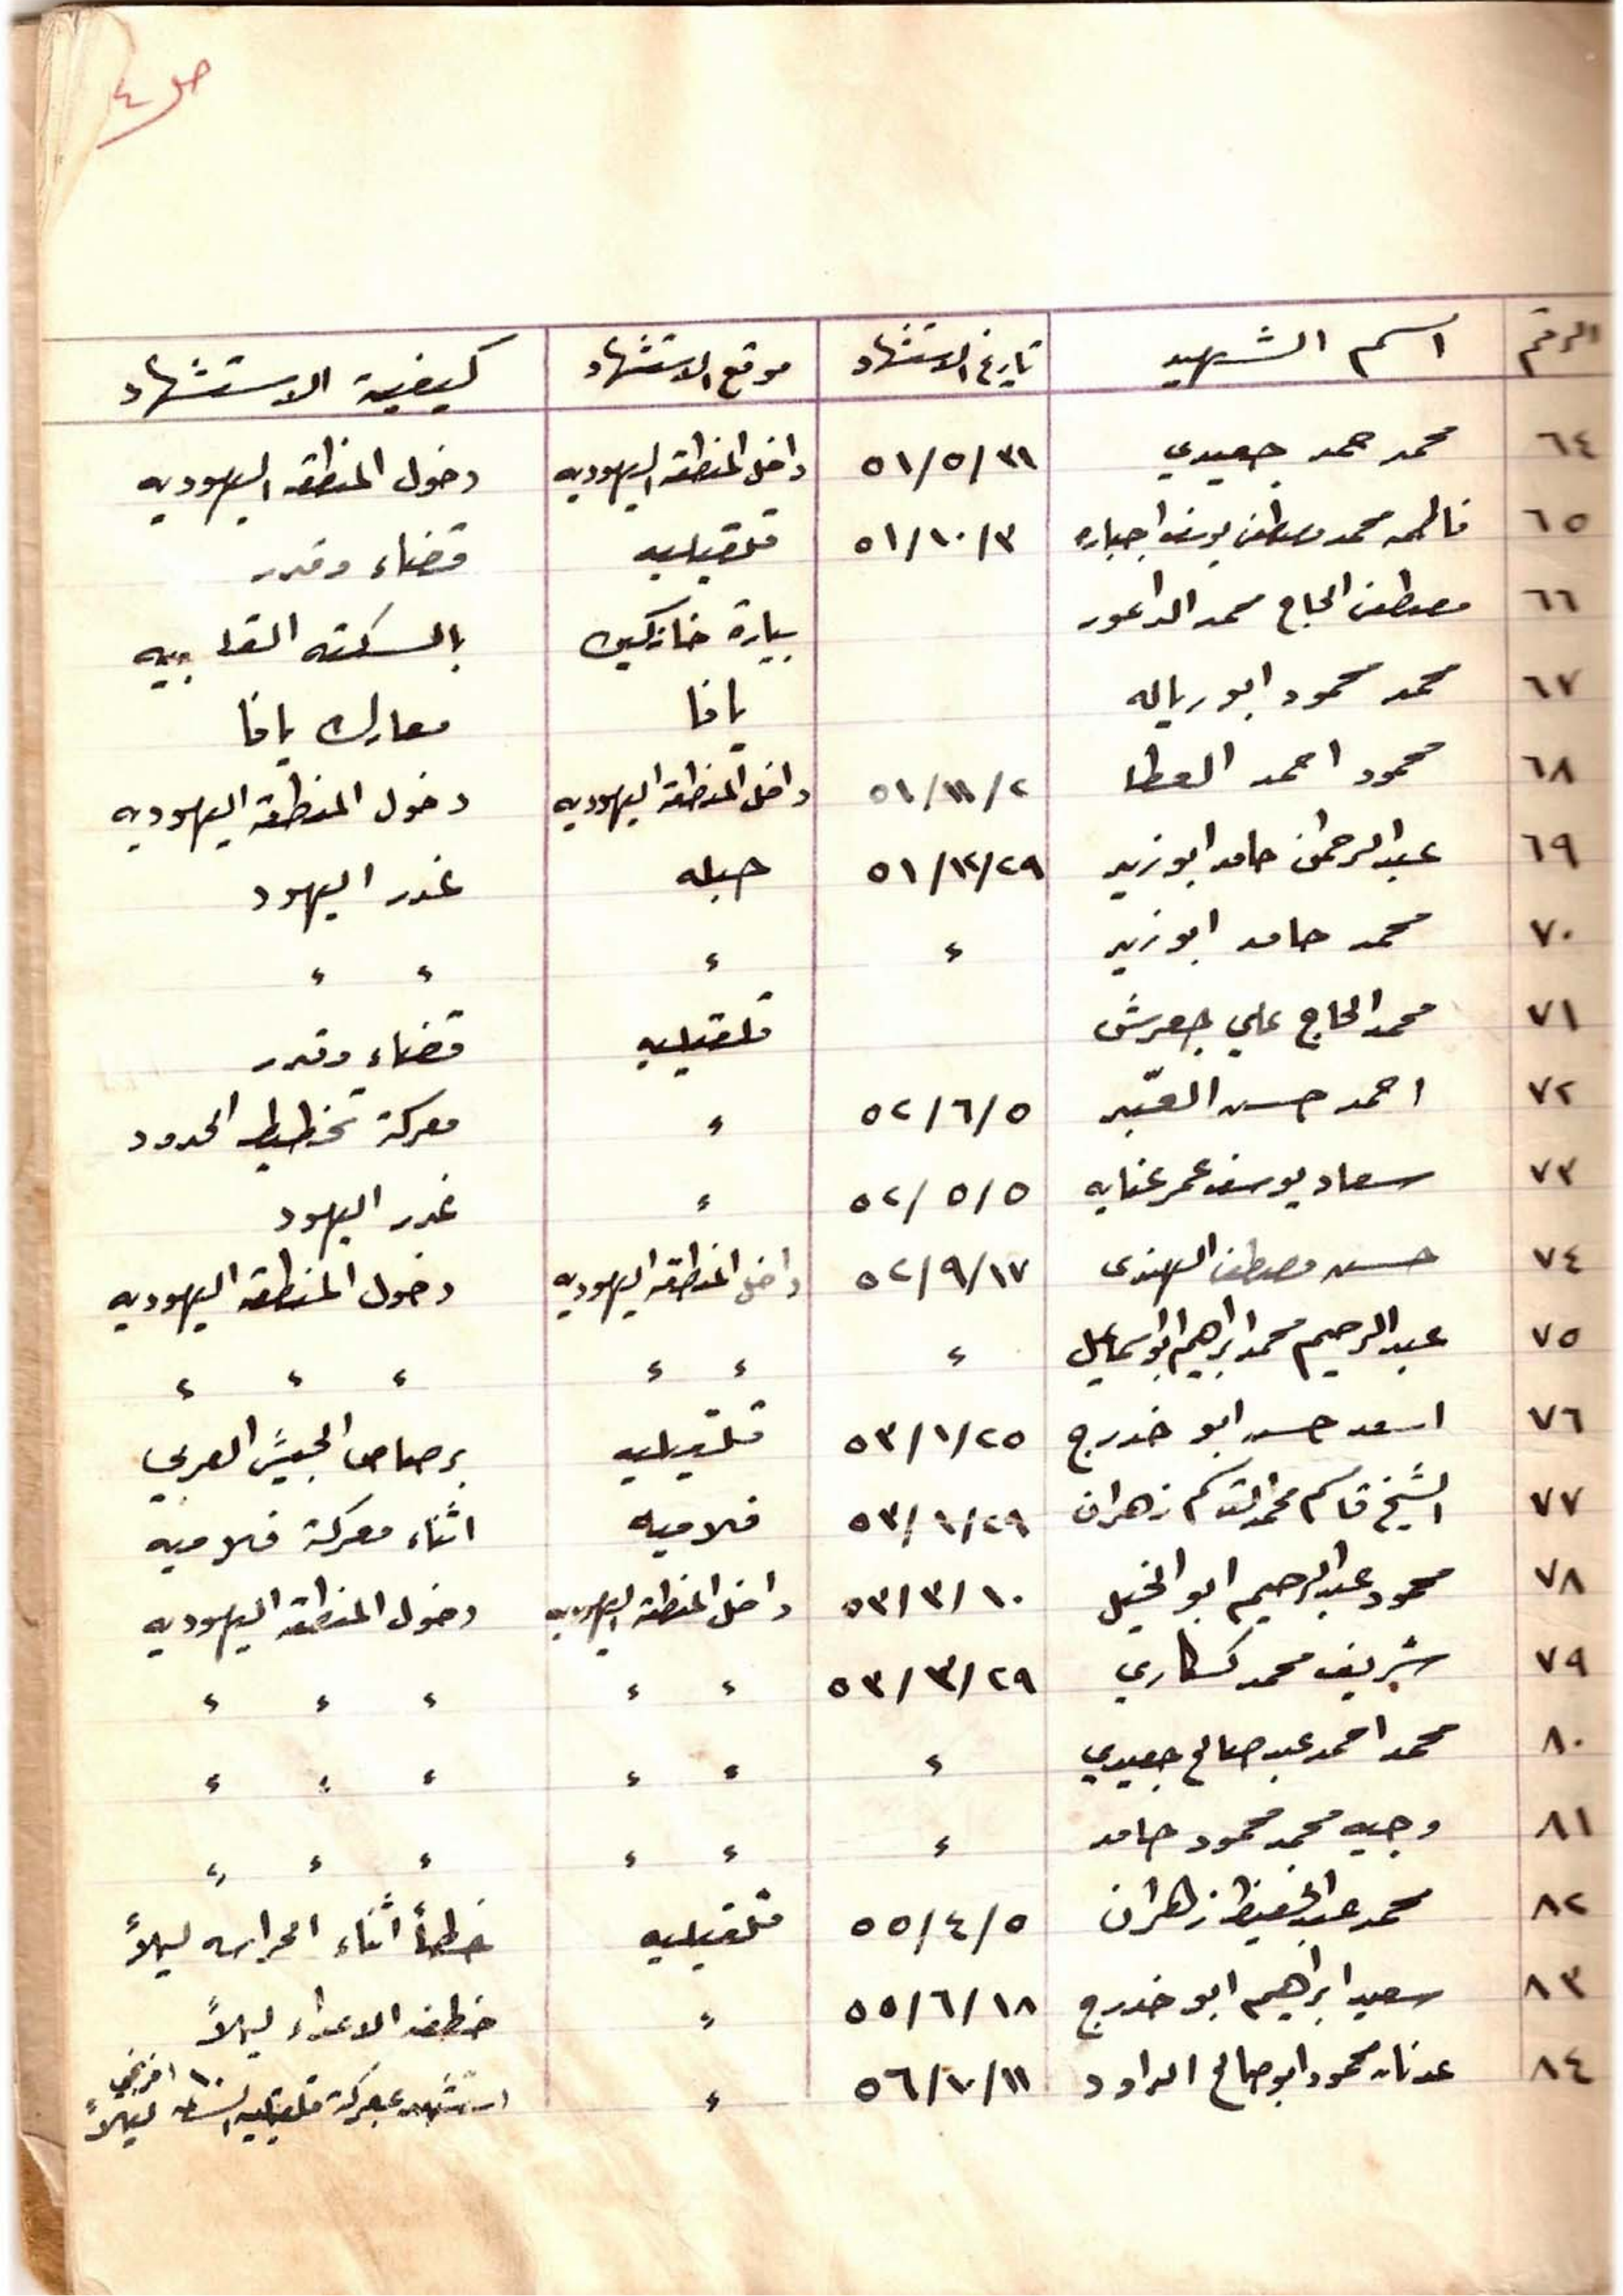 ص ٤
الرقم اسم الشهيد تاريخ الاستشهاد موقع الاستشهاد كيفية الاستشهاد
٦٤ محمد حمد جعيدي ٥١/٥/٣١ داخل المنطقه اليهوديه دخول المنطقه اليهوديه
٦٥ فاطمه محمد مصطفى يوسف اجباره ٥١/١٠/٣ قلقيليه قضاء وقدر
٦٦ مصطفى الحاج محمد الداعور بيارة خانكين بالسكته القلبيه
٦٧ محمد محمود ابو رياله يافا معارك يافا
٦٨ محمود احمد العطا ٥١/١١/٢ داخل المنطقه اليهوديه دخول المنطقه اليهوديه
٦٩ عبدالرحمن حامد ابوزيد ٥١/١٢/٢٩ حبله غدر اليهود
٧٠ محمد حامد ابوزيد ، ، ، ،
٧١ محمد الحاج علي جعرش قلقيليه قضاء وقدر
٧٢ احمد حسن القبّر ٥٢/٦/٥ ، معركة تخطيط الحدود
٧٣ سعاد يوسف عمر عنايه ٥٢/٥/٥ ، غدر اليهود
٧٤ حسن مصطفى الهندى ٥٢/٩/١٧ داخل المنطقه اليهوديه دخول المنطقه اليهوديه
٧٥ عبدالرحيم محمد ابراهيم ابو اسماعيل ، ، ، ، ، ،
٧٦ اسعد حسن ابو خدرج ٥٣/١/٢٥ قلقيليه برصاص الجيش العربي
٧٧ الشيخ قاسم محمد القاسم زهران ٥٣/١/٢٩ فلاميه اثناء معركة فلاميه
٧٨ محمود عبدالرحيم ابو الخيل ٥٣/٣/١٠ داخل المنطقه اليهوديه دخول المنطقه اليهوديه
٧٩ شريف محمد كسكاري ٥٣/٣/٢٩ ، ، ، ، ،
٨٠ محمد احمد عبد صالح جعيدي ، ، ، ، ، ،
٨١ وجيه محمد محمود حامد ، ، ، ، ، ،
٨٢ محمد عبدالحفيظ زهران ٥٥/٤/٥ قلقيليه خطأ اثناء الحراسه ليلاً
٨٣ سعيد ابراهيم ابو خدرج ٥٥/٦/١٨ ، خطف الاعداء ليلاً
٨٤ عدنان محمود ابو صالح الداود ٥٦/١٠/١١ ، استشهد بمعركة قلقيليه الساعه ١٠ افرنجي ليلاً